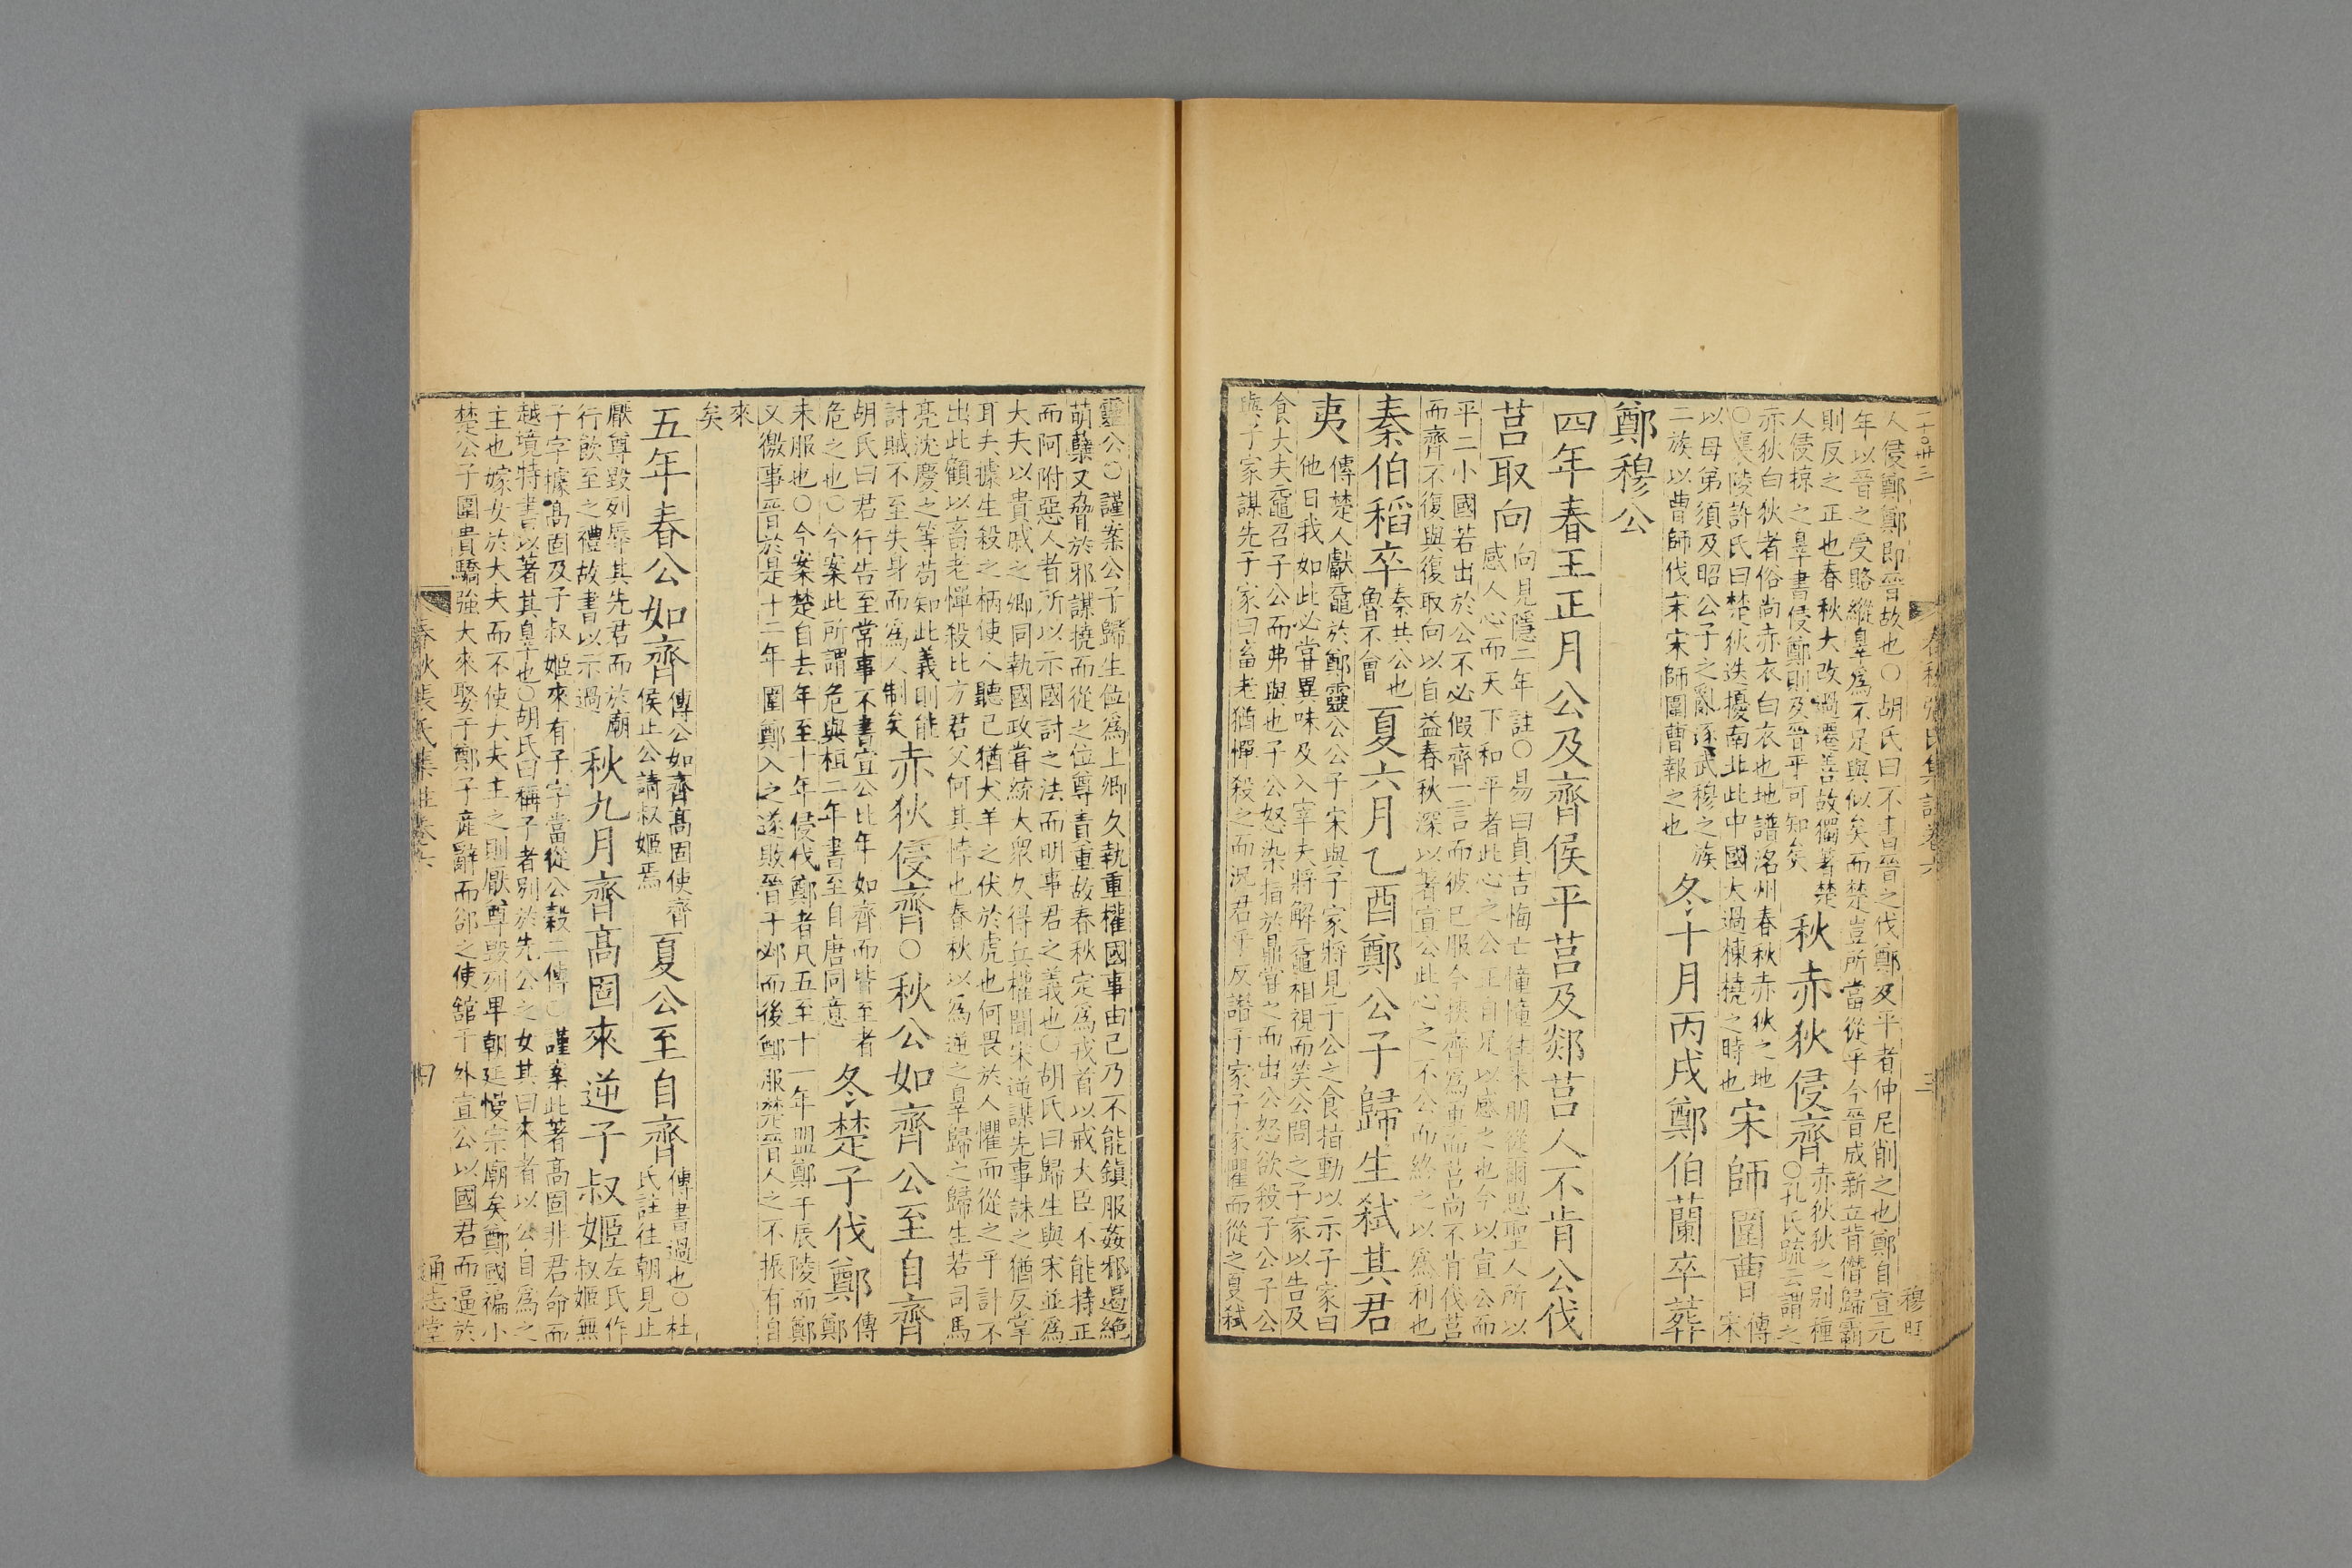 人侵鄭鄭即晉故也○胡氏曰不書晉之伐鄭及平者仲尼削之也鄭自宣元
年以晉之受賂縱辠為不足與似矣而楚豈所當從乎今晉成新立背僭歸霸
則反之正也春秋大改過遷善故獨著楚
人侵掠之辠書侵鄭則及晉平可知矣
秋赤狄侵齊
赤狄狄之別種
○孔氏疏云謂之
赤狄白狄者俗尚赤衣白衣也地譜洺州春秋赤狄之地
○襄陵許氏曰楚狄迭擾南北此中國大過棟橈之時也
宋師圍曹
傳宋
以母弟須及昭公子之亂逐武穆之族
二族以曹師伐宋宋師圍曹報之也
冬十月丙戌鄭伯蘭卒葬
鄭穆公
四年春王正月公及齊侯平莒及郯莒人不肯公伐
莒取向
向見隱二年註○易曰貞吉悔亡憧憧往來朋從爾思聖人所以
感人心而天下和平者此心之公正自足以感之也今以宣公而
平二小國若出於公不必假齊一言而彼已服今挾齊為重而莒尚不肯伐莒
而齊不復與復取向以自益春秋深以著宣公此心之不公而終之以為利也
秦伯稻卒
秦共公也
魯不會
夏六月乙酉鄭公子歸生弒其君
夷
傳楚人獻黿於鄭靈公公子宋與子家將見子公之食指動以示子家曰
他日我如此必嘗異味及入宰夫將解黿相視而笑公問之子家以告及
食大夫黿召子公而弗與也子公怒染指於鼎嘗之而出公怒欲殺子公子公
與子家謀先子家曰畜老猶憚殺之而況君乎反譖子家子家懼而從之夏弒
靈公○謹案公子歸生位為上卿久執重權國事由已乃不能鎮服姦邪遏絕
萌蘗又脅於邪謀撓而從之位尊責重故春秋定為戎首以戒大臣不能持正
而阿附惡人者所以示國討之法而明事君之義也○胡氏曰歸生與宋並為
大夫以貴戚之卿同執國政嘗統大衆久得兵權聞宋逆謀先事誅之猶反掌
耳夫據生殺之柄使人聽已猶犬羊之伏於虎也何畏於人懼而從之乎計不
出此顧以畜老憚殺比方君父何其悖也春秋以為逆之辠歸之歸生若司馬
亮沈慶之等苟知此義則能
討賊不至失身而為人制矣
赤狄侵齊○秋公如齊公至自齊
胡氏曰君行告至常事不書宣公比年如齊而皆至者
危之也○今案此所謂危與桓二年書至自唐同意
冬楚子伐鄭
傳鄭
未服也○今案楚自去年至十年侵伐鄭者凡五至十一年盟鄭于辰陵而鄭
又徼事晉於是十二年圍鄭入之遂敗晉于邲而後鄭服楚晉人之不振有自
來
矣
五年春公如齊
傳公如齊高固使齊
侯止公請叔姬焉
夏公至自齊
傳書過也○杜
氏註往朝見止
厭尊毀列辱其先君而於廟
行飲至之禮故書以示過
秋九月齊高固來逆子叔姬
左氏作
叔姬無
子字據高固及子叔姬來有子字當從公穀二傳○謹案此著高固非君命而
越境特書以著其辠也○胡氏曰稱子者別於先公之女其曰來者以公自為之
主也嫁女於大夫而不使大夫主之則厭尊毀列卑朝廷慢宗廟矣鄭國褊小
楚公子圍貴驕強大來娶于鄭子産辭而卻之使館于外宣公以國君而逼於
春秋張氏集註卷六
四
通志堂